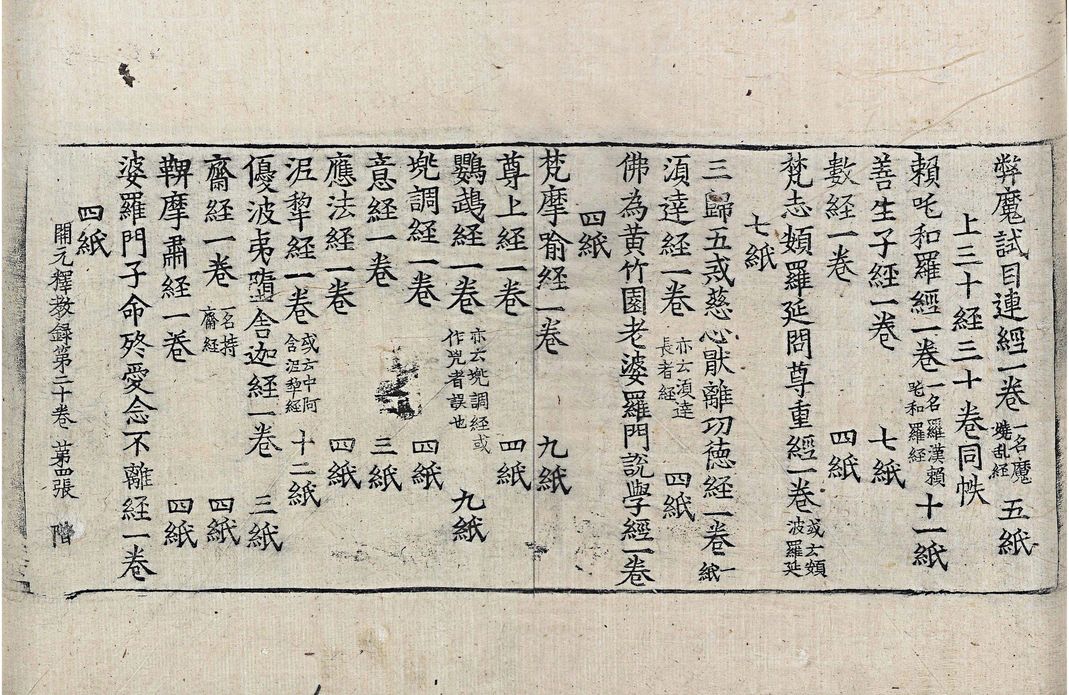 弊魔試目連經一卷 一名魔嬈乱経 五紙
上三十経三十卷同帙
頼吒和羅經一卷 一名羅漢頼吒和羅経 十一紙
善生子經一卷 七紙
數經一卷 四紙
梵志頞羅延問尊重經一卷 或云頞波羅延
七紙
三歸五戒慈心猒離功徳經一卷 一紙
湏達經一卷 亦云湏達長者経 四紙
佛為黄竹園老婆羅門説學經一卷
四紙
梵摩喻經一卷 九紙
尊上經一卷 四紙
鸚鵡經一卷 亦云兠調経或作兇者誤也 九紙
兠調經一卷 四紙
意經一卷 三紙
應法經一卷 四紙
泥犁經一卷 或云中阿含泥犁経 十二紙
優波夷墮舍迦經一卷 三紙
齋經一卷 一名持齋経 四紙
鞞摩肅經一卷 四紙
婆羅門子命終愛念不離經一卷
四紙
開元釋教録第二十卷 第四張 階